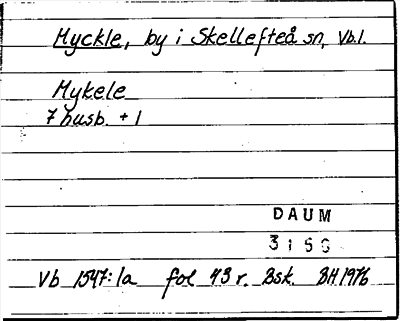 Myckle, by i Skellefteå sn, Vb.l.
Mykele
7 husb. + 1
DAUM
3150
Vb 1547:1a fol 43 r. Bsk. BH 1976